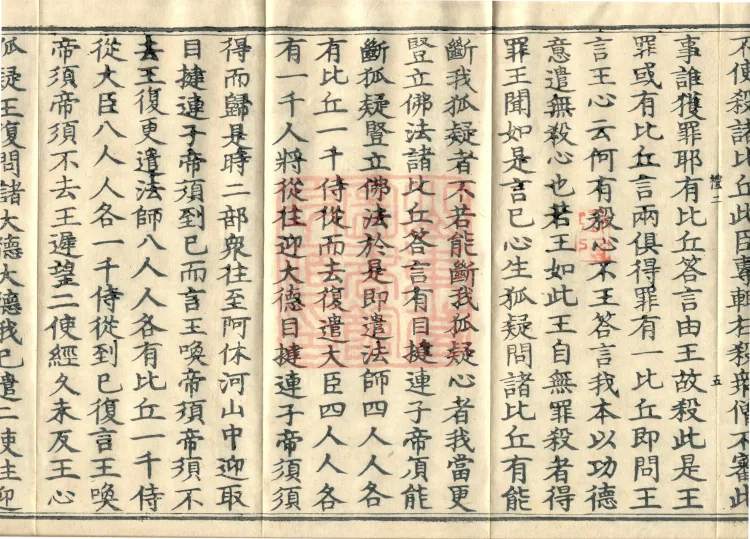 不使殺諸比丘此臣專輒枉殺衆僧不審此
五
事誰獲罪耶有比丘答言由王故殺此是王
罪或有比丘言兩俱得罪有一比丘即問王
言王心云何有殺心不王答言我本以功德
意遣無殺心也若王如此王自無罪殺者得
罪王聞如是言已心生狐疑問諸比丘有能
斷我狐疑者不若能斷我狐疑心者我當更
豎立佛法諸比丘答言有目揵連子帝須能
斷狐疑豎立佛法於是即遣法師四人人各
有比丘一千侍從而去復遣大臣四人人各
有一千人將從往迎大德目揵連子帝須須
得而歸是時二部衆往至阿休河山中迎取
目揵連子帝須到已而言王喚帝須帝須不
去王復更遣法師八人人各有比丘一千侍
從大臣八人人各一千侍從到已復言王喚
帝須帝須不去王遲望二使經久未反王心
狐疑王復問諸大德大德我已遣二使往迎